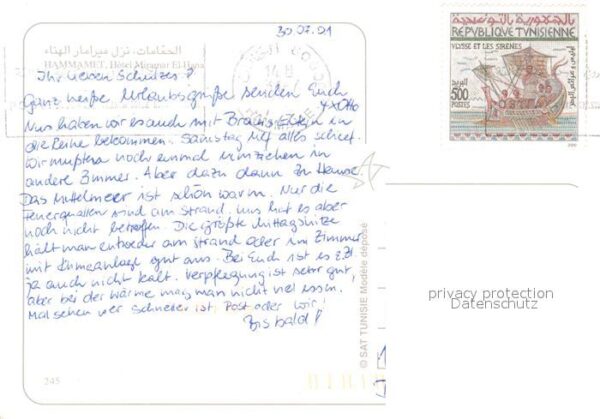 30.07.01
الحمامات، نزل ميرامار الهناء
HAMMAMET, Hôtel Miramar El-Hana
Ihr lieben Schulzes!
Ganz heiße Urlaubsgrüße senden Euch
Nun haben wir es auch mit in
die Reihe bekommen. Samstag lief alles schief.
Wir mußten noch einmal einziehen in
andere Zimmer. Aber dazu dann zu Hause.
Das Mittelmeer ist schön warm. Nur die
Feuerquallen sind am Strand. Uns hat es aber
noch nicht betroffen. Die größte Mittagshitze
hält man entweder am Strand oder im Zimmer
mit Klimaanlage gut aus. Bei Euch ist es z.Zt.
ja auch nicht kalt. Verpflegung ist sehr gut,
aber bei der Wärme mag man nicht viel essen.
Mal sehen wer schneller ist Post oder wir!
Bis bald!
245
© SAT TUNISIE Modèle déposé
الجمهورية التونسية
REPUBLIQUE TUNISIENNE
ULYSSE ET LES SIRENES
البريد
500
POSTES
privacy protection
Datenschutz